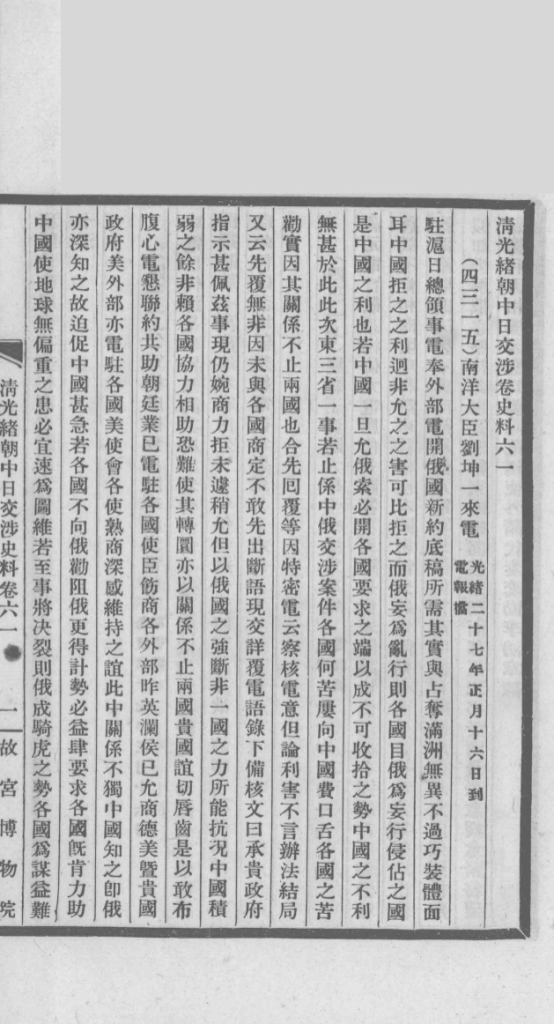 清光緒朝中日交涉卷史料六一
（四三一五）南洋大臣劉坤一來電
光緒二十七年正月十六日到
電報檔
駐滬日總領事電奉外部電開俄國新約底稿所需其實與占奪滿洲無異不過巧裝體面
耳中國拒之之利迥非允之之害可比拒之而俄妄為亂行則各國目俄為妄行侵佔之國
是中國之利也若中國一旦允俄索必開各國要求之端以成不可收拾之勢中國之不利
無甚於此此次東三省一事若止係中俄交涉案件各國何苦屢向中國費口舌各國之苦
勸實因其關係不止兩國也合先囘覆等因特密電云察核電意但論利害不言辦法結局
又云先覆無非因未與各國商定不敢先出斷語現交詳覆電語錄下備核文曰承貴政府
指示甚佩茲事現仍婉商力拒未遽稍允但以俄國之強斷非一國之力所能抗況中國積
弱之餘非賴各國協力相助恐難使其轉圜亦以關係不止兩國貴國誼切唇齒是以敢布
腹心電懇聯約共助朝廷業已電駐各國使臣飭商各外部昨英瀾侯已允商德美曁貴國
政府美外部亦電駐各國美使會各使熟商深感維持之誼此中關係不獨中國知之卽俄
亦深知之故迫促中國甚急若各國不向俄勸阻俄更得計勢必益肆要求各國旣肯力助
中國使地球無偏重之患必宜速為圖維若至事將决裂則俄成騎虎之勢各國為謀益難
清光緒朝中日交涉史料卷六一
一
故宮博物院